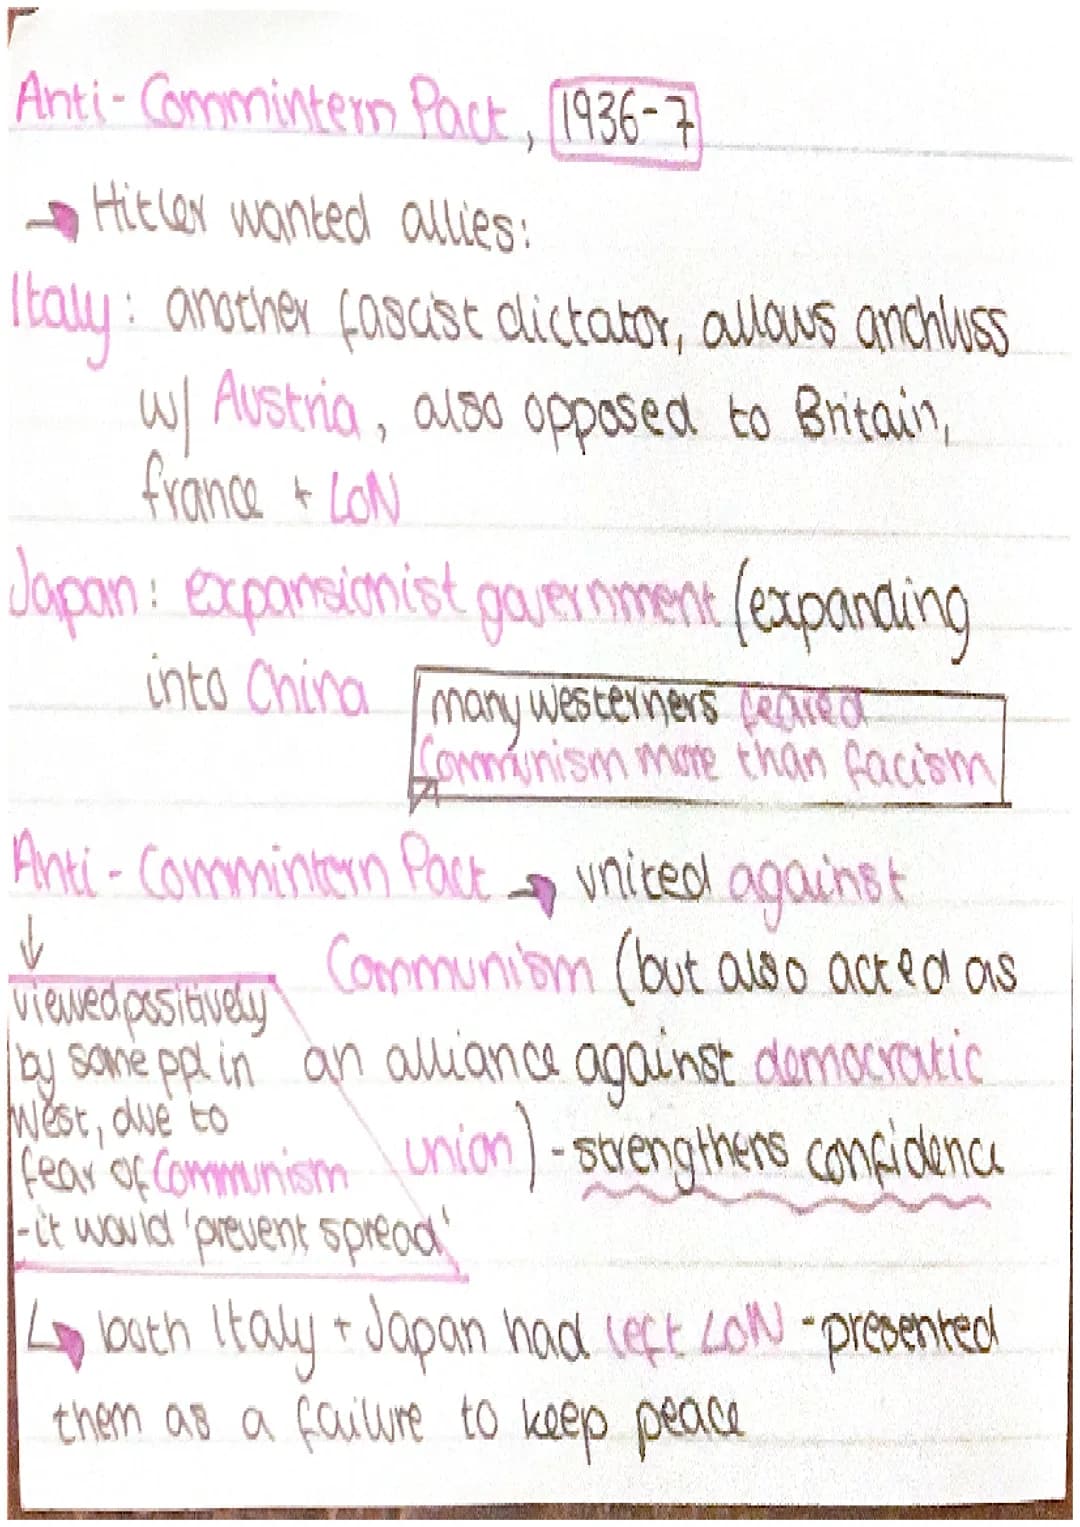 Anti-Commintern Pact, 1936-7
→ Hitler wanted allies:
Italy: another fascist dictator, allows anchluss
w/ Austria, also opposed to Britain,
france + LoN
Japan: expansionist government (expanding
into China
many westerners feared
Communism more than facism
Anti-Commintern Pact → united against
Communism (but also acted as
an alliance against democratic
union) - strengthens confidence
↓
viewed positively
by some ppl in
West, due to
fear of Communism
- it would 'prevent spread'
↳ both Italy + Japan had left LoN - presented
them as a failure to keep peace